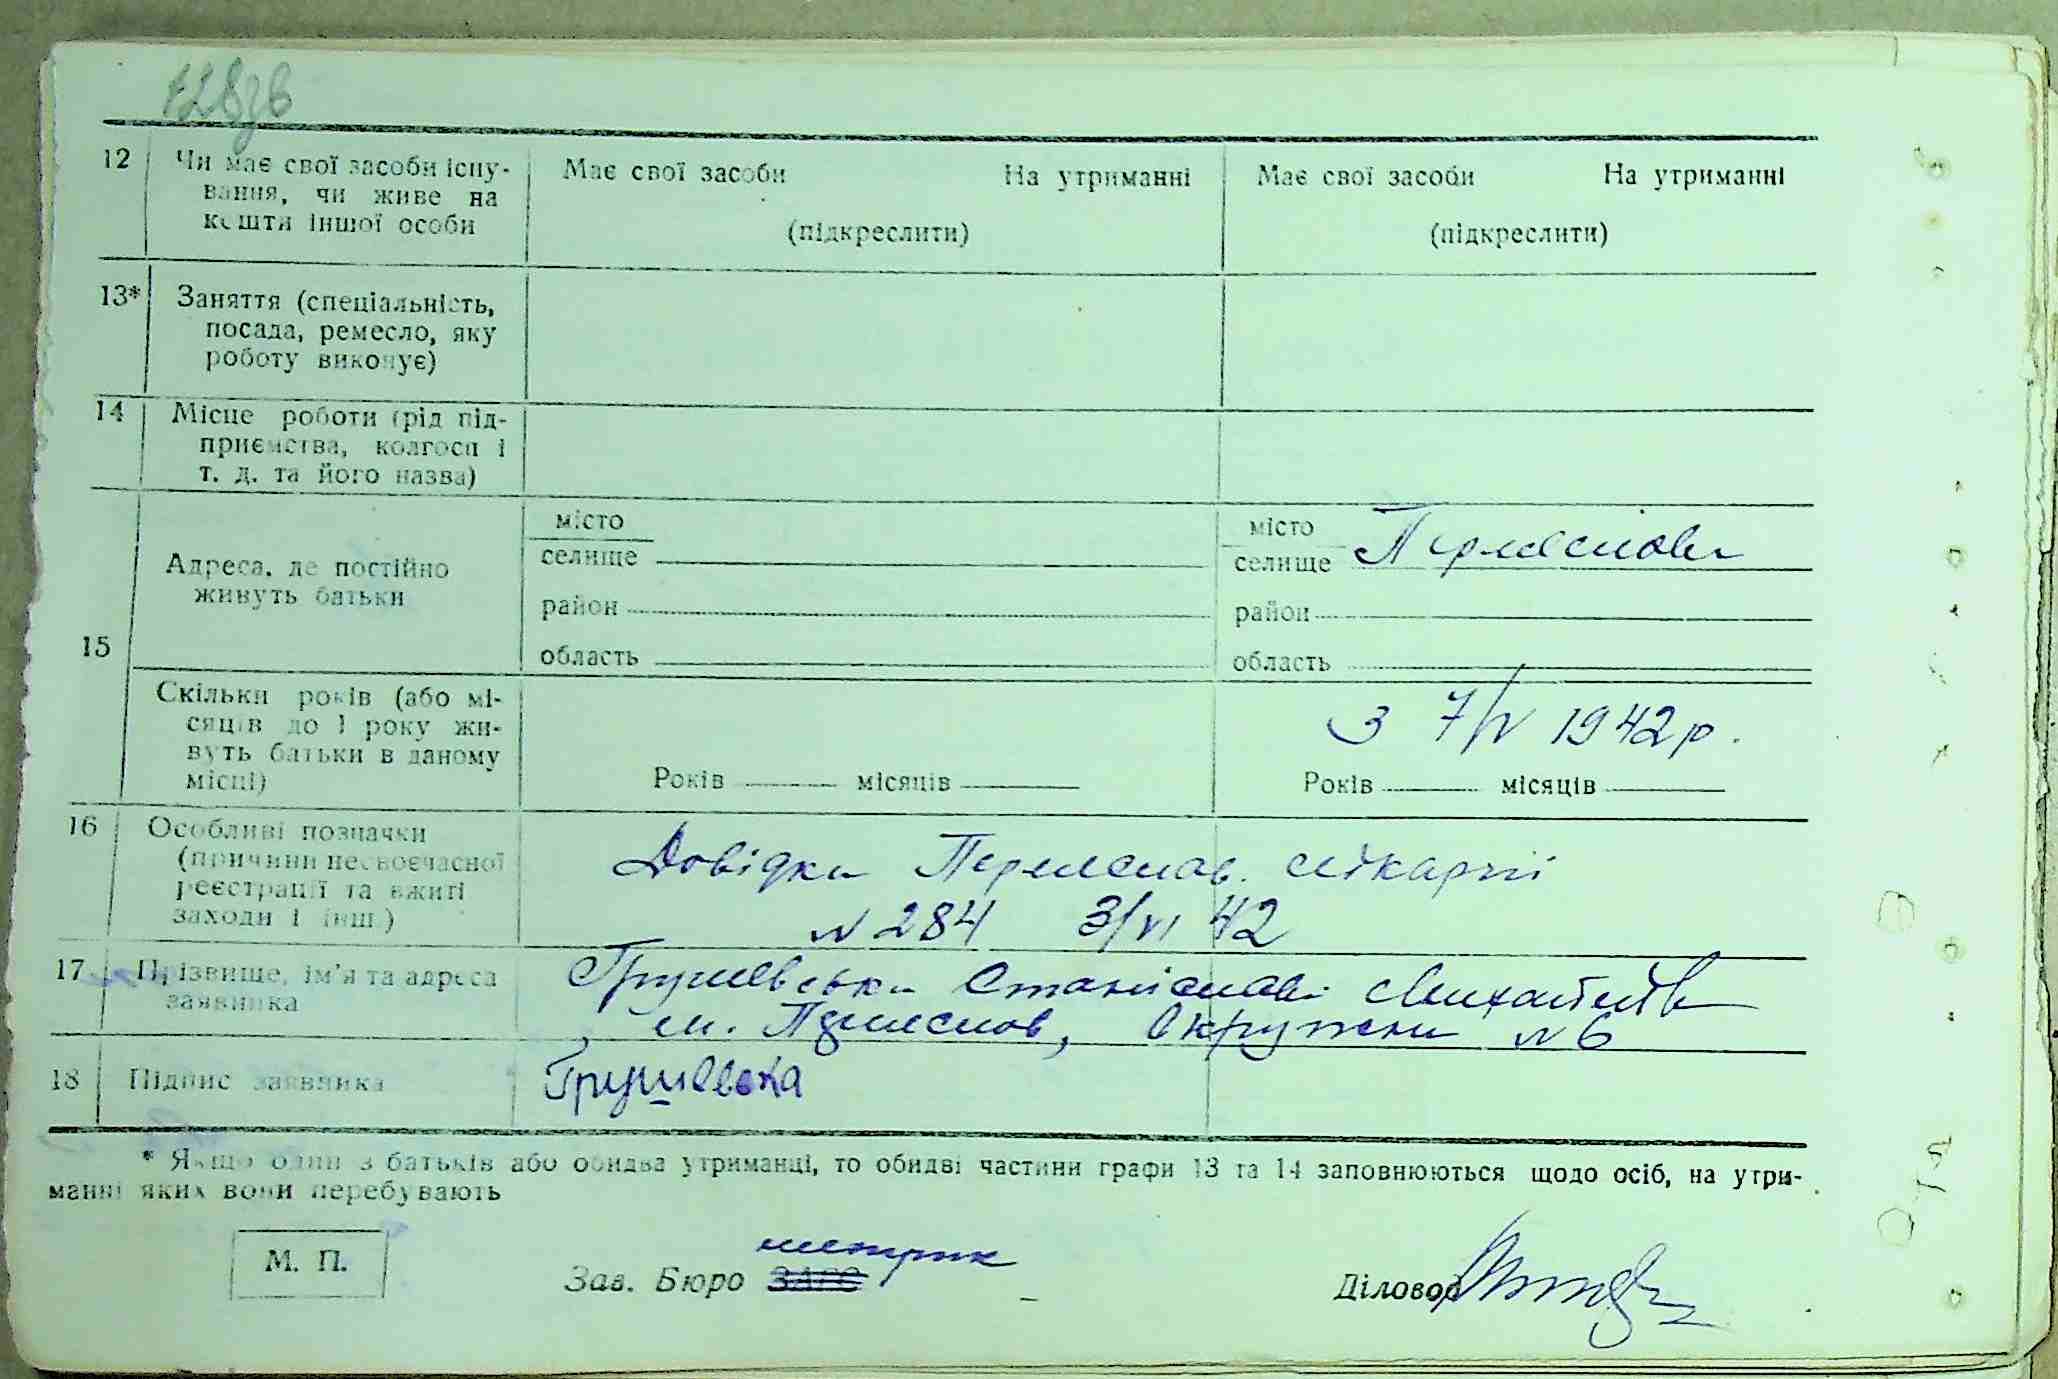 128зв
12 Чи має свої засоби існу-
вання, чи живе на
кошти іншої особи
Має свої засоби На утриманні
(підкреслити)
Має свої засоби На утриманні
(підкреслити)
13* Заняття (спеціальність,
посада, ремесло, яку
роботу виконує)
14 Місце роботи (рід під-
приємства, колгосп і
т. д. та його назва)
15
Адреса, де постійно
живуть батьки
місто
селище
район
область
місто
селище
район
область
Скільки років (або мі-
сяців до 1 року жи-
вуть батьки в даному
місці)
Років місяців
З 7/V 1942 р.
Років місяців
16 Особливі позначки
(причини несвоєчасної
реєстрації та вжиті
заходи і інш.)
Довідка Переяслав. лікарні
N 284 3/VI 42
17 Прізвище, ім'я та адреса
заявника
Грушевська Станіслава
м. Переяслов, Окружна N 6
18 Підпис заявника
Грушевська
* Якщо один з батьків або обидва утриманці, то обидві частини графи 13 та 14 заповнюються щодо осіб, на утри-
манні яких вони перебувають
М. П.
метрик
Зав. Бюро ЗАГС
Діловод